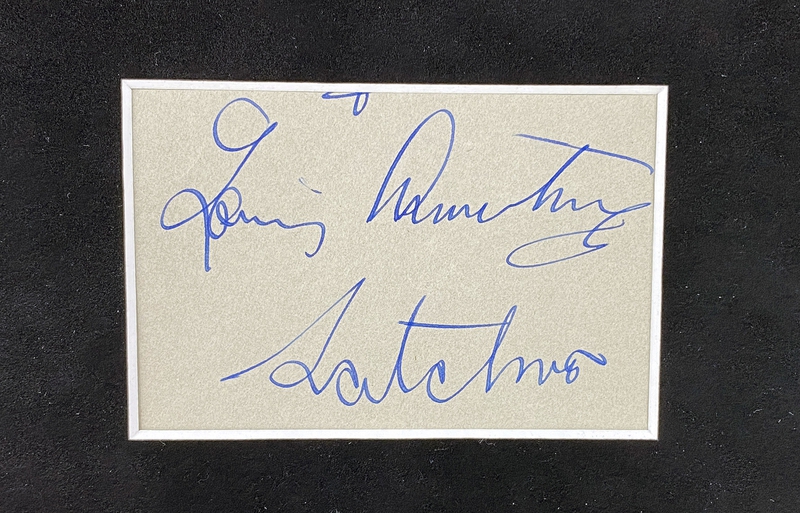 Louis Armstrong
Satchmo